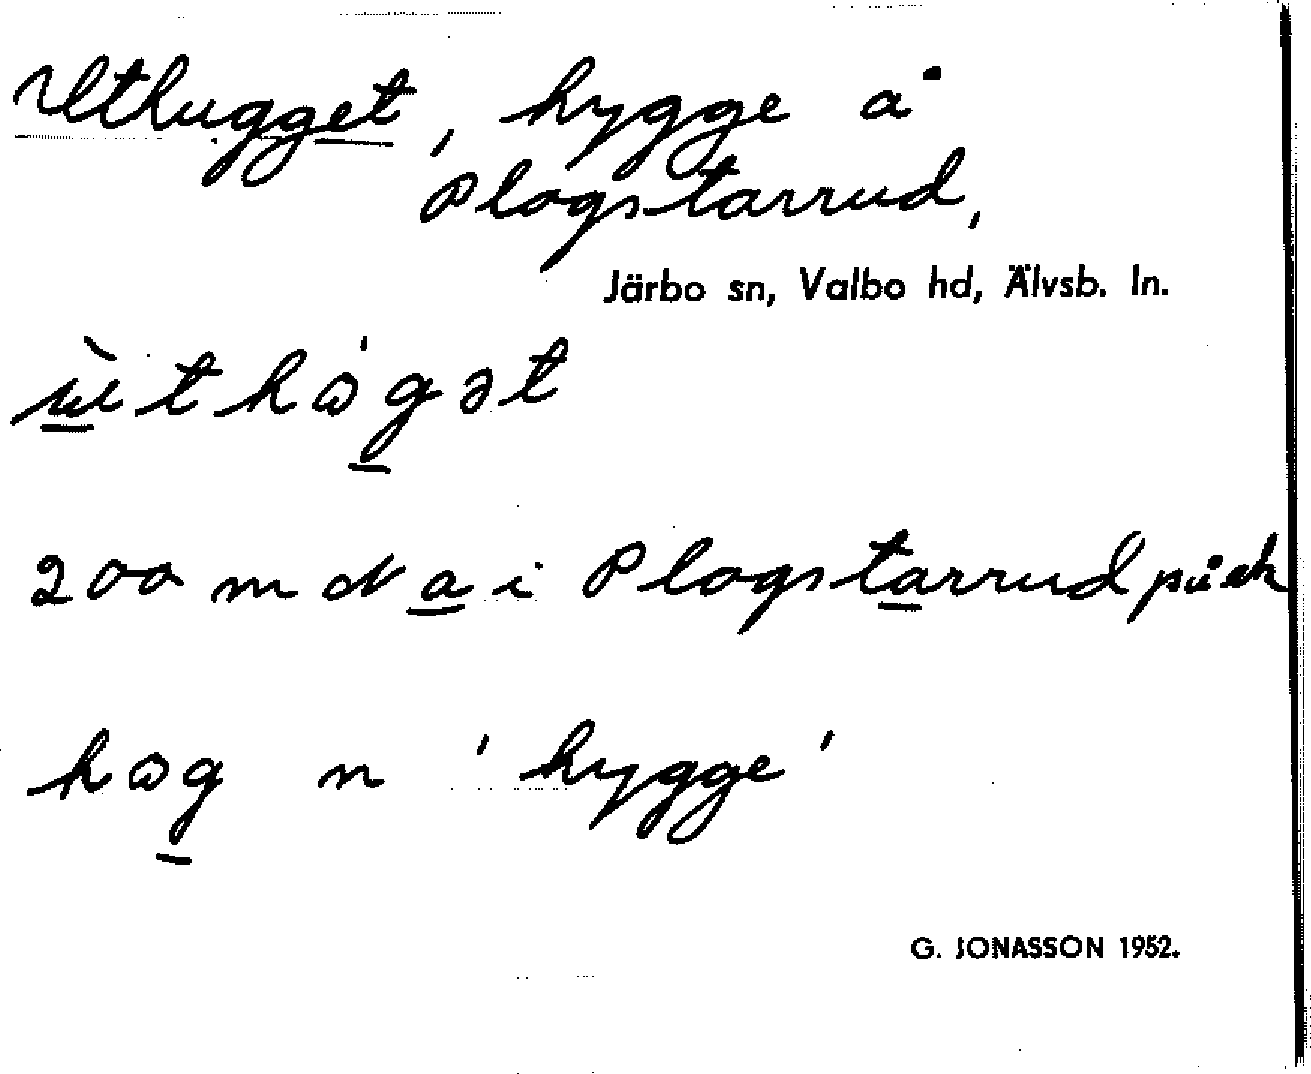 Uthugget, hygge å
Plogstarrud,
Järbo sn, Valbo hd, Älvsb. ln.
ùthɷ́gət
200 m N a i Plogstarrud på ek
hɷg n 'hygge'
G. JONASSON 1952.